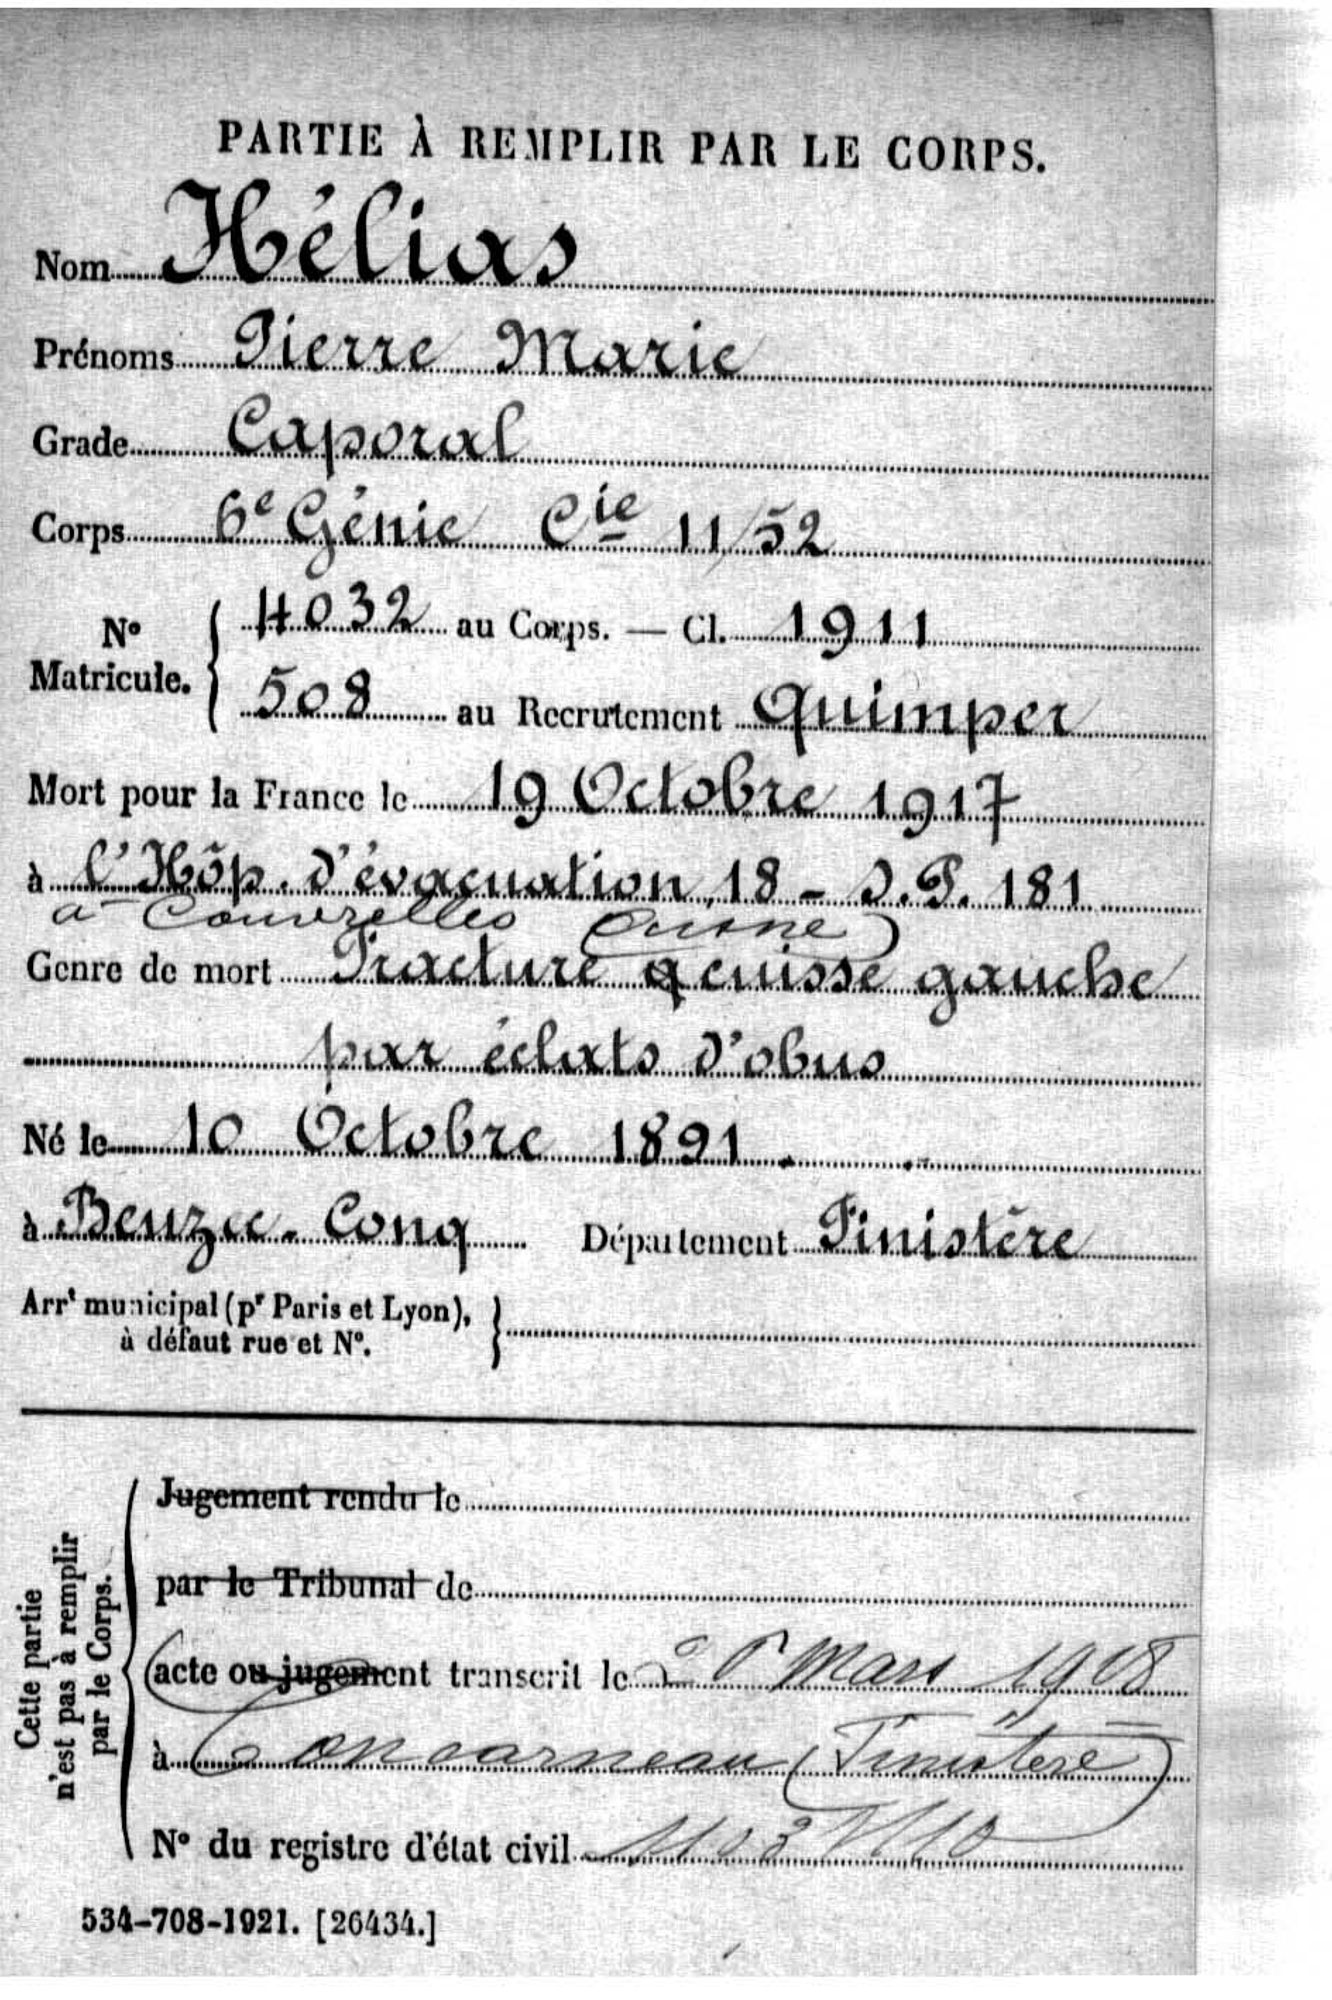 PARTIE À REMPLIR PAR LE CORPS.
Nom Hélias
Prénoms Pierre Marie
Grade Caporal
Corps 6e Génie Cie 11/52
No Matricule. { 4032 au Corps. — Cl. 1911
508 au Recrutement Quimper
Mort pour la France le 19 Octobre 1917
à l'Hôp. d'évacuation 18 - S.P. 181
à Couvrelles (Aisne)
Genre de mort Fracture cuisse gauche
par éclats d'obus
Né le 10 Octobre 1891
à Beuzec-Conq Département Finistère
Arrt municipal (pr Paris et Lyon),
à défaut rue et No.
Cette partie
n'est pas à remplir
par le Corps.
Jugement rendu le
par le Tribunal de
acte ou jugement transcrit le Mars 1918
à Concarneau (Finistère)
No du registre d'état civil
534-708-1921. [26434.]